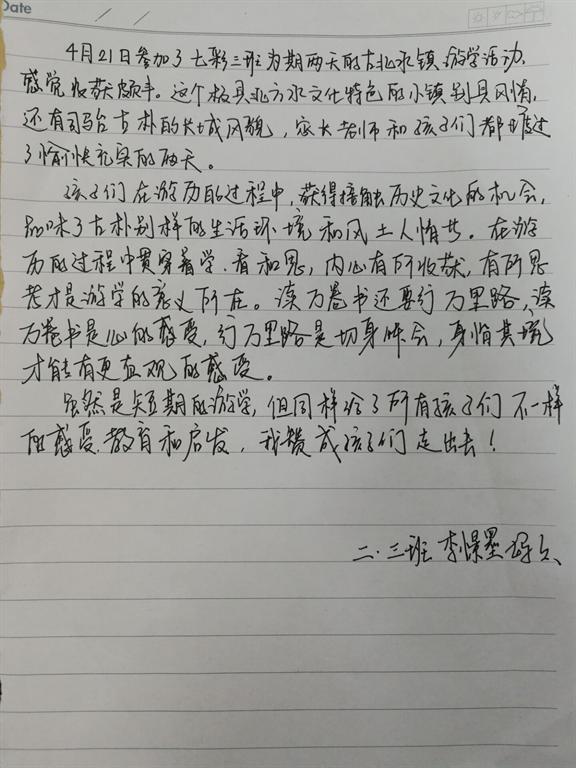 Date
4月21日参加了七彩三班为期两天的古北水镇游学活动,
感觉收获颇丰。这个极具北方水文化特色的小镇别具风情,
还有司马台古朴的长城风貌,家长老师和孩子们都度过
了愉快充实的两天。
孩子们在游历的过程中,获得接触历史文化的机会,
品味了古朴别样的生活环境和风土人情等。在游
历的过程中贯穿着学、看和思,内心有所收获,有所思
考才是游学的意义所在。读万卷书还要行万里路,读
万卷书是心的感受,行万里路是切身体会,身临其境
才能有更直观的感受。
虽然是短期的游学,但同样给了所有孩子们不一样
的感受、教育和启发,我赞成孩子们走出去!
二·三班 李憬墨